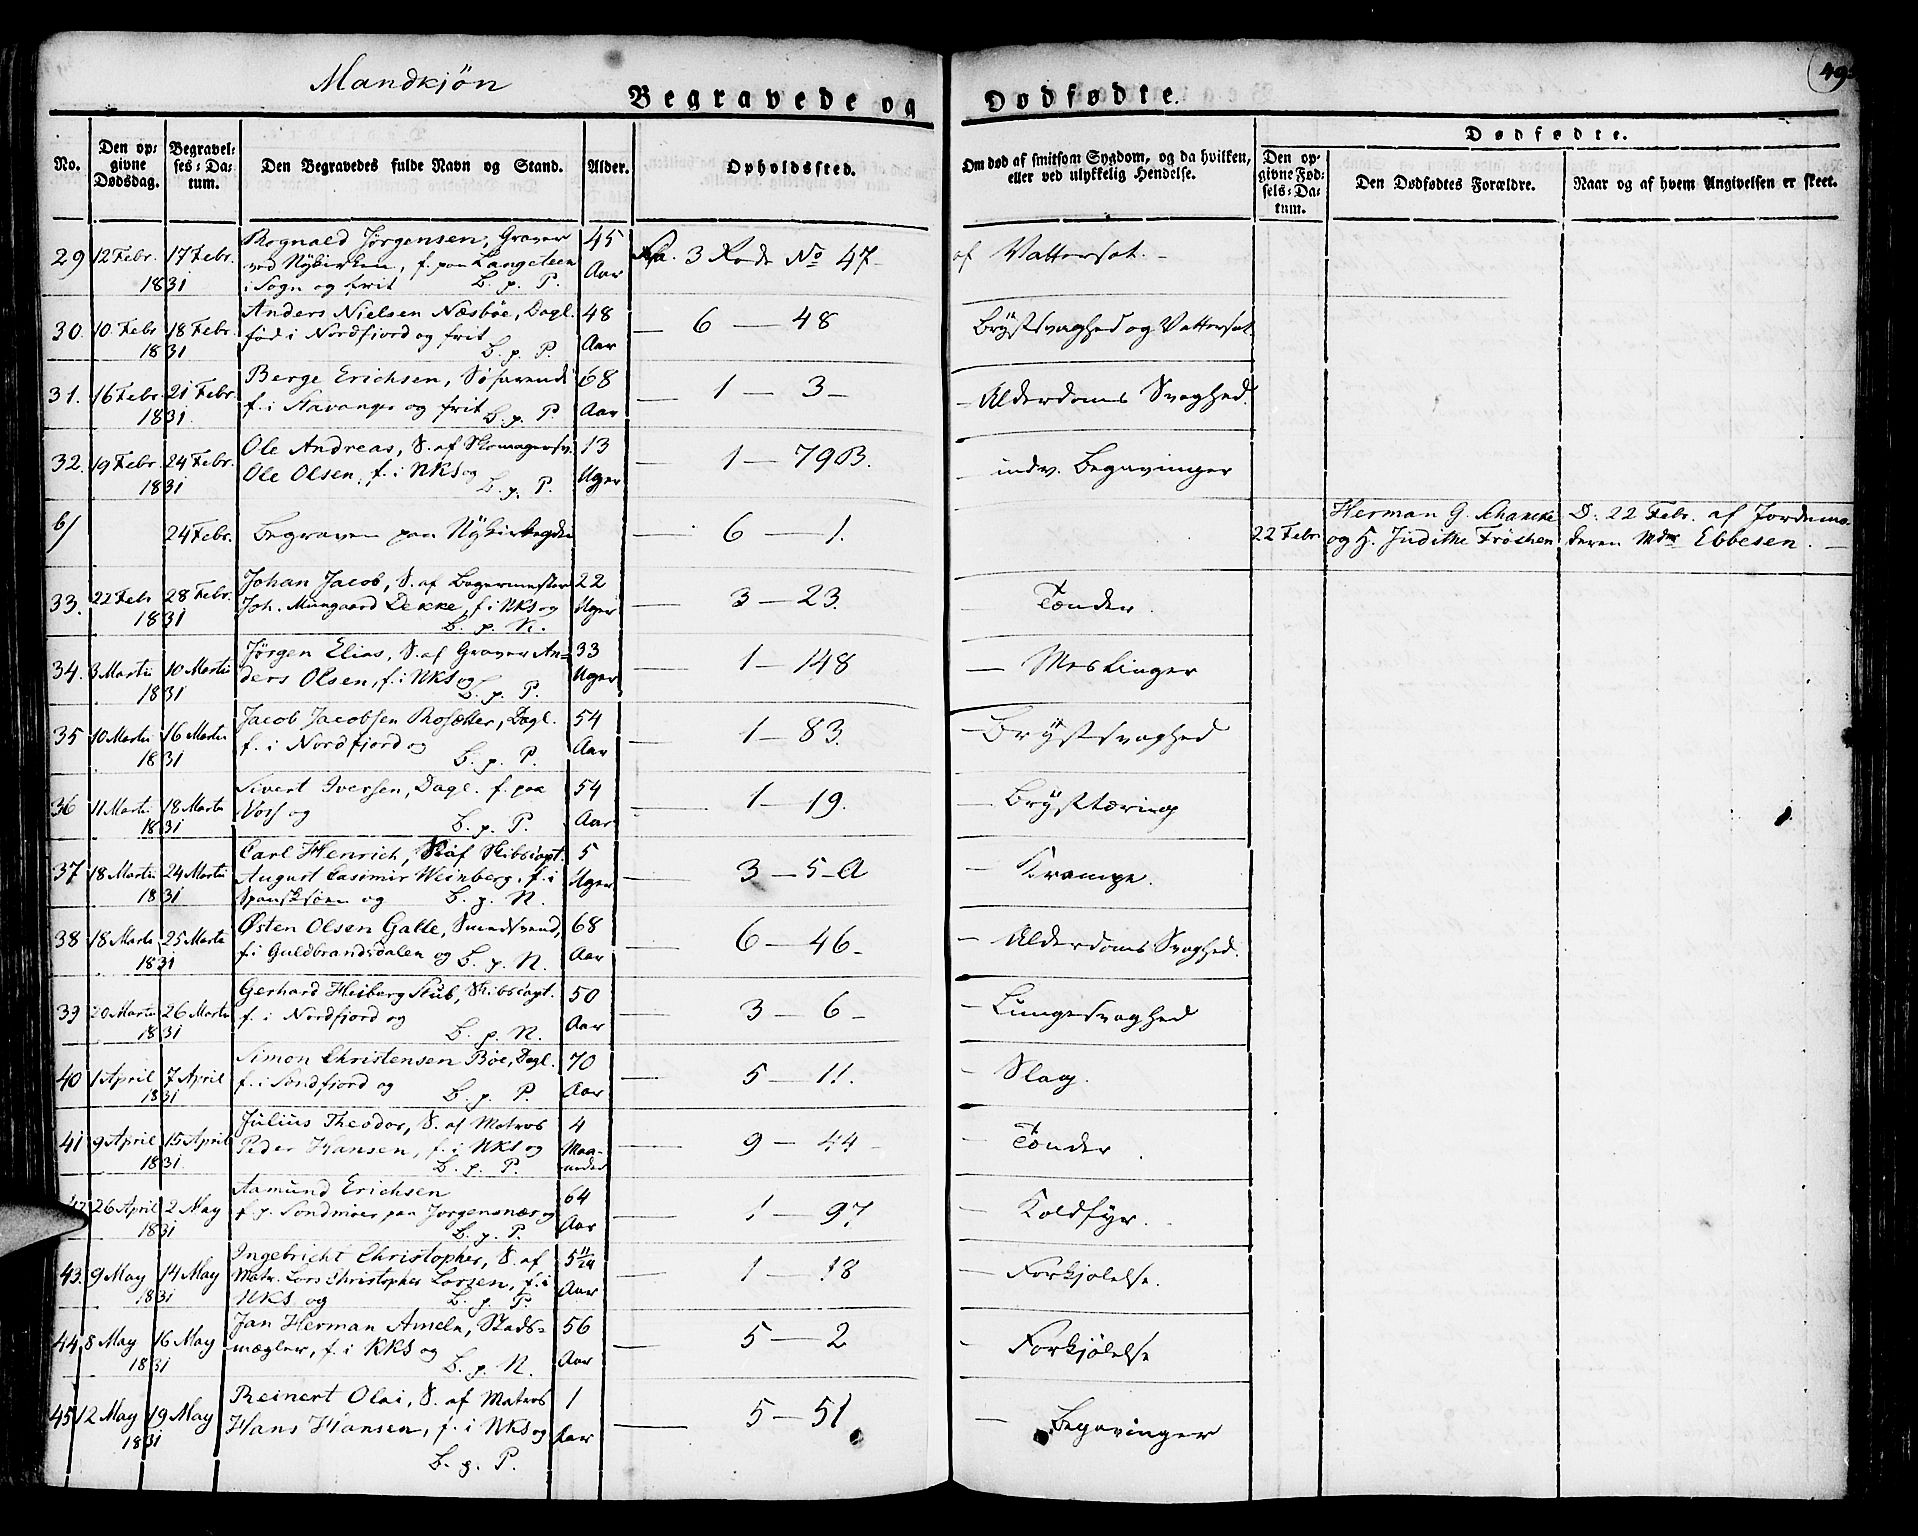 Mandkjön
Begravede og Dødfødte.
49
No.
Den opgivne Dødsdag.
Begravelses-Datum.
Den Begravedes fulde Navn og Stand.
Alder.
Opholdssted.
Om død af smitsom Sygdom, og da hvilken, eller ved ulykkelig Hendelse.
Dødfødte.
Den opgivne Fødsels-Datum.
Den Dødfødtes Forældre.
Naar og af hvem Angivelsen er skeet.
29 12 Febr. 17 Febr. 1831 Rognald Jørgensen, Graver 45 Aar 3 Rode No 47 af Vattersot.
ved Nykirken, f. paa Langeteen
i Sogn og frit B. p. P.
30. 10 Febr 18 Febr. 1831 Anders Nielsen Næsbøe, Dagl. 48 Aar — 6 — 48 Brystsvaghed og Vattersot.
fød i Nordfjord og frit B. p. P.
31. 16 Febr. 21 Febr. 1831 Berge Erichsen, Søfarende 68 Aar — 1 — 3 — Alderdoms Svaghed.
f. i Stavanger og frit B. p. P.
32. 19 Febr. 24 Febr. 1831 Ole Andreas, S. af Skomagersv. 13 Uger — 1 — 79 B. indv. Begavinger
Ole Olsen, f. i NKS og B. p. P.
6/ 24 Febr. Begraven paa Nykirkegden — 6 — 1. 22 Febr. Herman G. Schancke D. 22 Febr. af Jordemo-
og H. Judithe Frøchen deren Mdm Ebbesen. —
33. 22 Febr 28 Febr. 1831 Johan Jacob, S. af Bagermester 22 Uger — 3 — 23. Tænder.
Joh. Mungaard Dekke, f. i NKS og
B. p. N.
34. 3 Martii 10 Martii 1831 Jørgen Elias, S. af Graver An- 33 Uger — 1 — 148 — Meslinger
ders Olsen, f. i NKS og B. p. P.
35 10 Martii 16 Martii 1831 Jacob Jacobsen Rosætter, Dagl. 54 Aar — 1 — 83. — Brystsvaghed
f. i Nordfjord og B. p. P.
36 11 Martii 18 Martii 1831 Sivert Iversen, Dagl. f. paa 54 Aar — 1 — 19. — Brysttæring
Vors og B. p. P.
37 18 Martii 24 Martii 1831 Carl Henrich, S. af Skibscapt. 5 Uger — 3 — 5 — A — Krampe.
August Casimir Weinberg, f. i
og B. p. N.
38 18 Martii 25 Martii 1831 Østen Olsen Galte, Smedsvend, 68 Aar — 6 — 46 — — Alderdoms Svaghed.
f. i Guldbrandsdalen og B. p. N.
39 20 Martii 26 Martii 1831 Gerhard Heiberg Stub, Skibscapt. 50 Aar — 3 — 6 — — Lungesvaghed
f. i Nordfjord og B. p. N.
40 1 April 7 April 1831 Simon Christensen Bøe, Dagl. 70 Aar — 5 — 11. — Slag.
f. i Sondfjord og B. p. P.
41 9 April 15 April 1831 Julius Theodor, S. af Matros 4 Maaneder — 9 — 44 — — Tænder.
Peder Hansen, f. i NKS og
B. p. P.
26 April 2 May 1831 Aamund Erichsen 64 Aar — 1 — 97. — Koldfyr.
f. p. Sondmøer paa Jorgensnær og
B. p. P.
43. 9 May 14 May 1831 Ingebricht Christopher, S. af 5 11/24 Aar — 1 — 18 — Forkjølelse.
Matr. Lars Christopher Larsen, f. i
NKS og B. p. P.
44 8 May 16 May 1831 Jan Herman Ameln, Stads- 56 Aar — 5 — 2 — Forkjølelse
mægler, f. i KKS og B. p. N.
45 12 May 19 May 1831 Reinert Olai, S. af Matros 1 Aar — 5 — 51 — Begavinger
Hans Hansen, f. i NKS og
B. p. P.